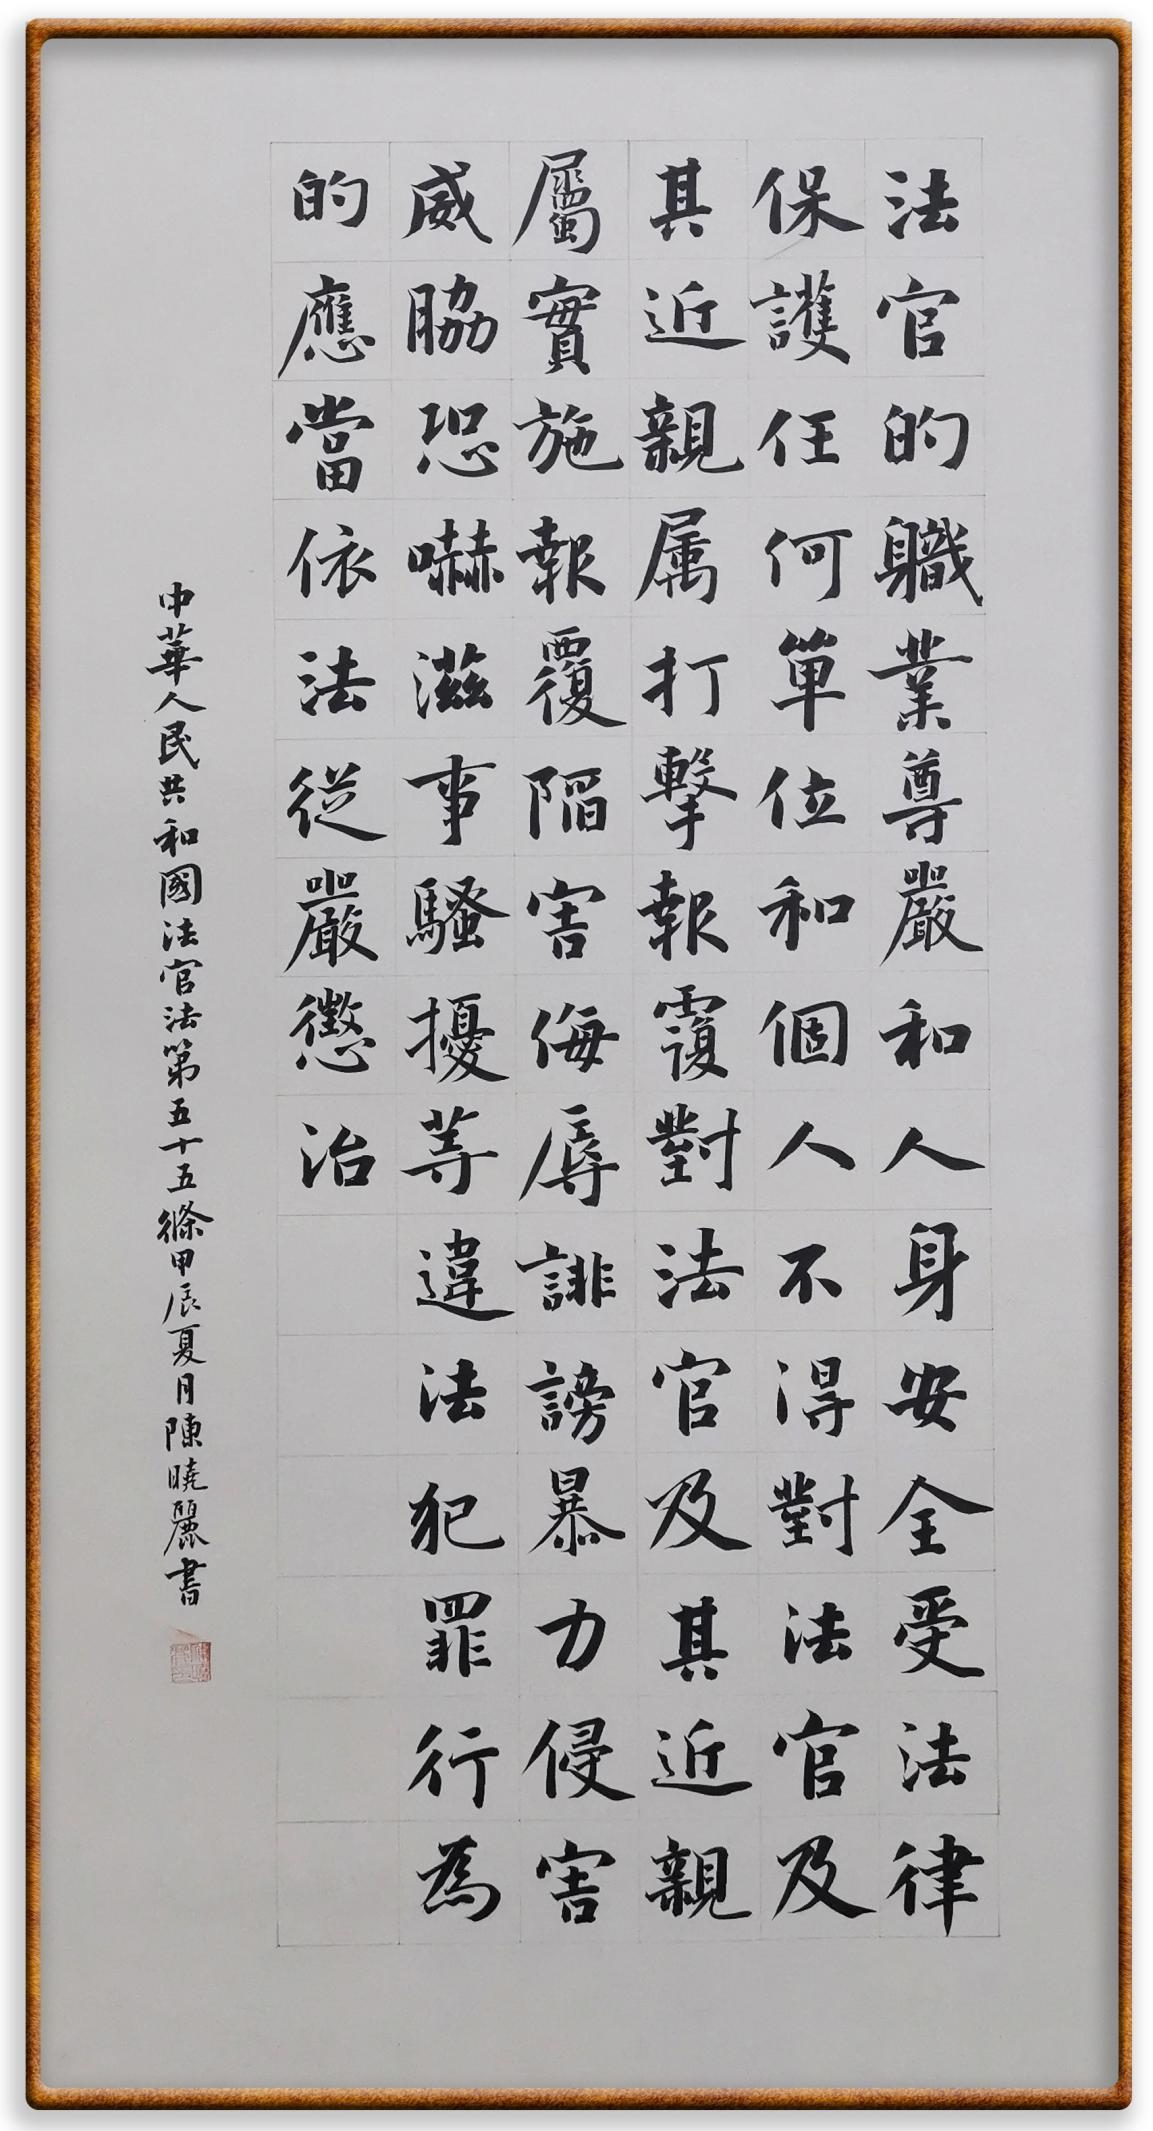 法官的職業尊嚴和人身安全受法律
保護任何單位和個人不得對法官及
其近親属打擊報覆對法官及其近親
屬實施報覆陷害侮辱誹謗暴力侵害
威脇恐嚇滋事騷擾等違法犯罪行為
的應當依法從嚴懲治
中華人民共和國法官法第五十五條甲辰夏月陳曉麗書